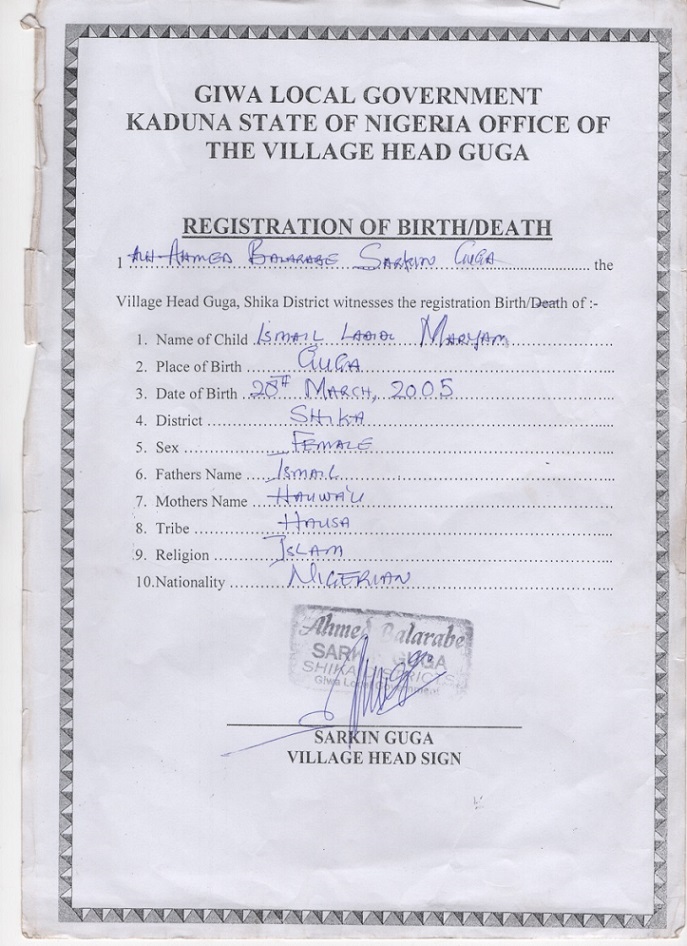 GIWA LOCAL GOVERNMENT
KADUNA STATE OF NIGERIA OFFICE OF
THE VILLAGE HEAD GUGA
REGISTRATION OF BIRTH/DEATH
1 ALH AHMED BALARABE SARKIN GUGA the
Village Head Guga, Shika District witnesses the registration Birth/Death of :-
1. Name of Child ISMAIL LADIDI MARYAM
2. Place of Birth GUGA
3. Date of Birth 28TH MARCH, 2005
4. District SHIKA
5. Sex FEMALE
6. Fathers Name ISMAIL
7. Mothers Name HAUWA'U
8. Tribe HAUSA
9. Religion ISLAM
10.Nationality NIGERIAN
Ahmed Balarabe
SARKIN GUGA
SHIKA DISTRICTS
Giwa Local Government
SARKIN GUGA
VILLAGE HEAD SIGN